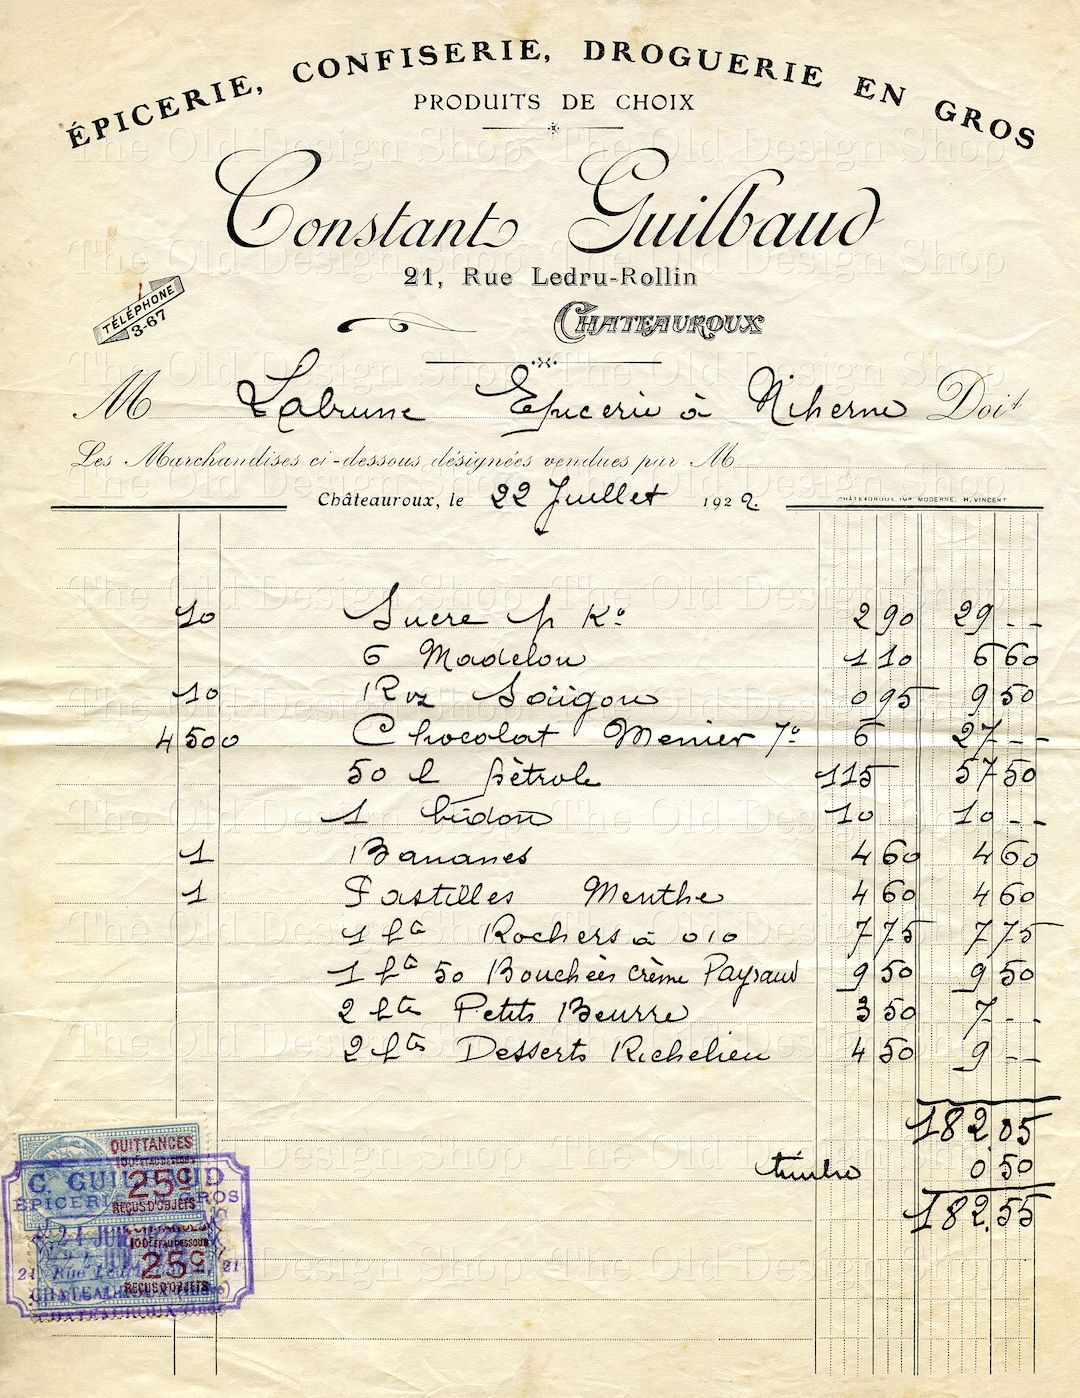 ÉPICERIE, CONFISERIE, DROGUERIE EN GROS
PRODUITS DE CHOIX
Constant Guilbaud
21, Rue Ledru-Rollin
TÉLÉPHONE
3-67
CHATEAUROUX
M Labrune Epicerie à Niherne Doit
Les Marchandises ci-dessous désignées vendues par M
Châteauroux, le 22 Juillet 1922.
CHÂTEAUROUX IMP. MODERNE, H. VINCENT
10 Sucre p Kº 2 90 29 - -
6 Madelon 1 10 6 60
10 Riz Saïgon 0 95 9 50
4 500 Chocolat Menier 7º 6 27 - -
50 l pétrole 115 57 50
1 bidon 10 10 - -
1 Bananes 4 60 4 60
1 Pastilles Menthe 4 60 4 60
1 bte Rochers à 010 7 75 7 75
1 bte 50 Bouchées crème Payraud 9 50 9 50
2 btes Petits Beurre 3 50 7 - -
2 btes Desserts Richelieu 4 50 9 - -
182,05
timbre 0 50
182,55
QUITTANCES
25c
REÇUS D'OBJETS
C. GUILBAUD
ÉPICERIE EN GROS
25c
REÇUS D'OBJETS
21 21
CHATEAUROUX
The Old Design Shop The Old Design Shop